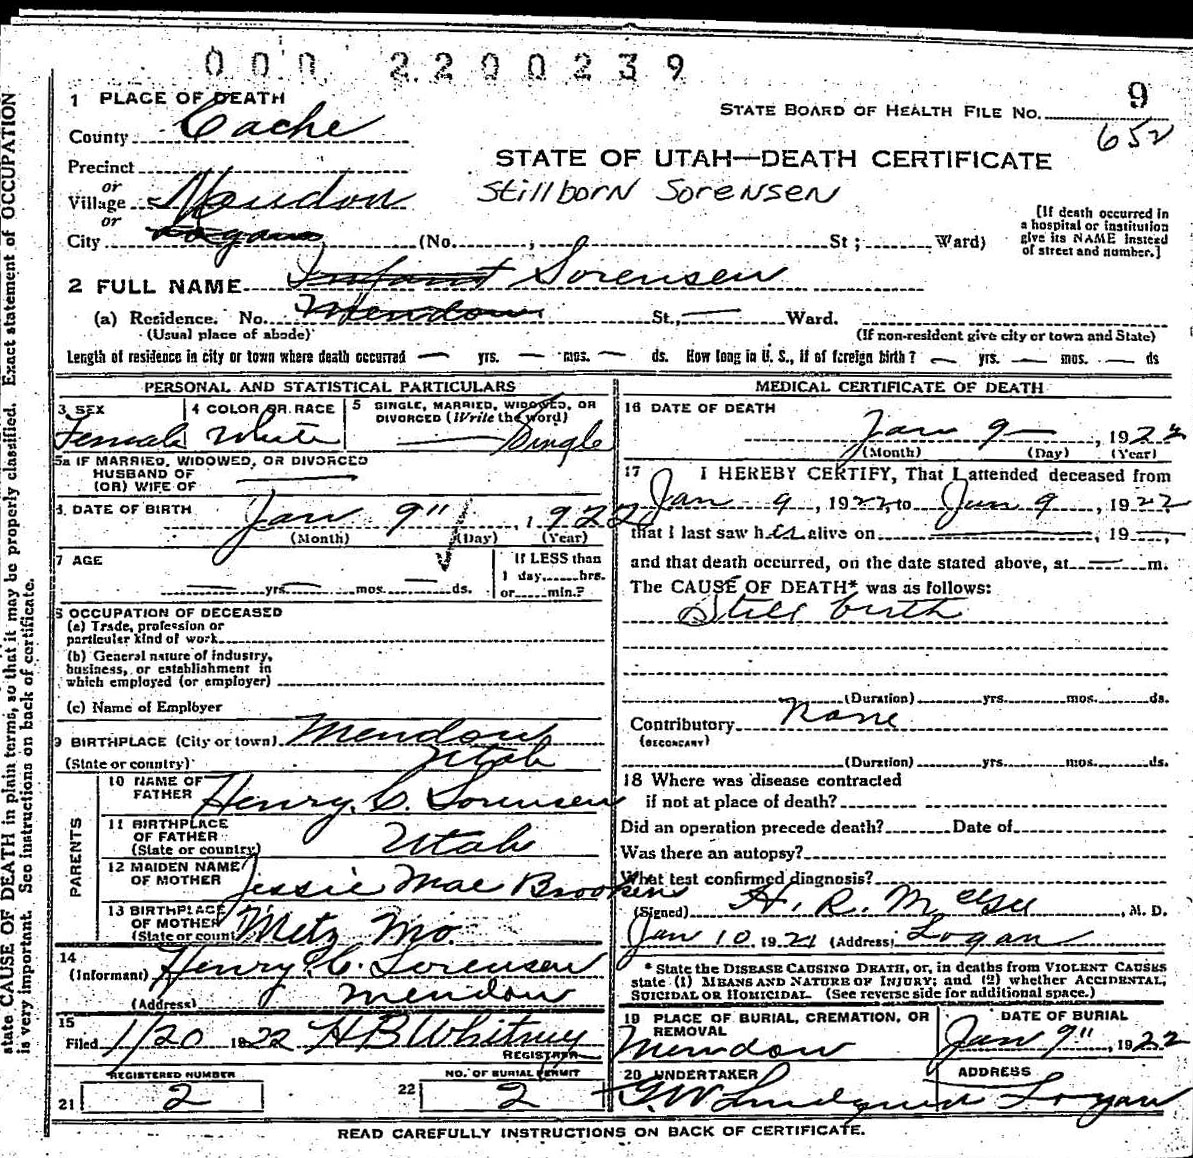 000 2200239
1 PLACE OF DEATH
STATE BOARD OF HEALTH FILE NO. 9
652
County Cache
Precinct
or
Village Mendon
or
City Logan (No. , St ; Ward)
STATE OF UTAH—DEATH CERTIFICATE
Stillborn Sorensen
[If death occurred in
a hospital or institution
give its NAME instead
of street and number.]
2 FULL NAME Infant Sorensen
(a) Residence. No. Mendon St., Ward.
(Usual place of abode)
(If non-resident give city or town and State)
Length of residence in city or town where death occurred — yrs. — mos. — ds. How long in U. S., if of foreign birth? — yrs. — mos. — ds
PERSONAL AND STATISTICAL PARTICULARS
3 SEX Female
4 COLOR OR RACE White
5 SINGLE, MARRIED, WIDOWED, OR
DIVORCED (Write the word)
Single
5a IF MARRIED, WIDOWED, OR DIVORCED
HUSBAND OF
(OR) WIFE OF
6. DATE OF BIRTH Jan 9" , 1922
(Month) (Day) (Year)
7 AGE
— yrs. — mos. — ds.
If LESS than
1 day, hrs.
or min.?
8 OCCUPATION OF DECEASED
(a) Trade, profession or
particular kind of work
(b) General nature of industry,
business, or establishment in
which employed (or employer)
(c) Name of Employer
9 BIRTHPLACE (City or town) Mendon
(State or country) Utah
PARENTS
10 NAME OF
FATHER Henry C. Sorensen
11 BIRTHPLACE
OF FATHER
(State or country) Utah
12 MAIDEN NAME
OF MOTHER Jessie Mae Brookens
13 BIRTHPLACE
OF MOTHER
(State or country) Metz Mo.
14
(Informant) Henry C. Sorensen
(Address) Mendon
15
Filed 1/20 1922 H B Whitney
REGISTRAR
REGISTERED NUMBER
21 2
NO. OF BURIAL PERMIT
22 2
MEDICAL CERTIFICATE OF DEATH
16 DATE OF DEATH
Jan 9 — , 1922
(Month) (Day) (Year)
17 I HEREBY CERTIFY, That I attended deceased from
Jan 9 , 1922, to Jan 9 , 1922
that I last saw her alive on , 19 ,
and that death occurred, on the date stated above, at — m.
The CAUSE OF DEATH* was as follows:
Still birth
(Duration) yrs. mos. ds.
Contributory None
(SECONDARY)
(Duration) yrs. mos. ds.
18 Where was disease contracted
if not at place of death?
Did an operation precede death? Date of
Was there an autopsy?
What test confirmed diagnosis?
(Signed) H. R. McGee , M. D.
Jan 10 1921 (Address) Logan
* State the DISEASE CAUSING DEATH, or, in deaths from VIOLENT CAUSES
state (1) MEANS AND NATURE OF INJURY; and (2) whether ACCIDENTAL,
SUICIDAL OR HOMICIDAL. (See reverse side for additional space.)
19 PLACE OF BURIAL, CREMATION, OR
REMOVAL
Mendon
DATE OF BURIAL
Jan 9" , 1922
20 UNDERTAKER
G. W. Lindquist
ADDRESS
Logan
READ CAREFULLY INSTRUCTIONS ON BACK OF CERTIFICATE.
state CAUSE OF DEATH in plain terms, so that it may be properly classified. Exact statement of OCCUPATION
is very important. See instructions on back of certificate.